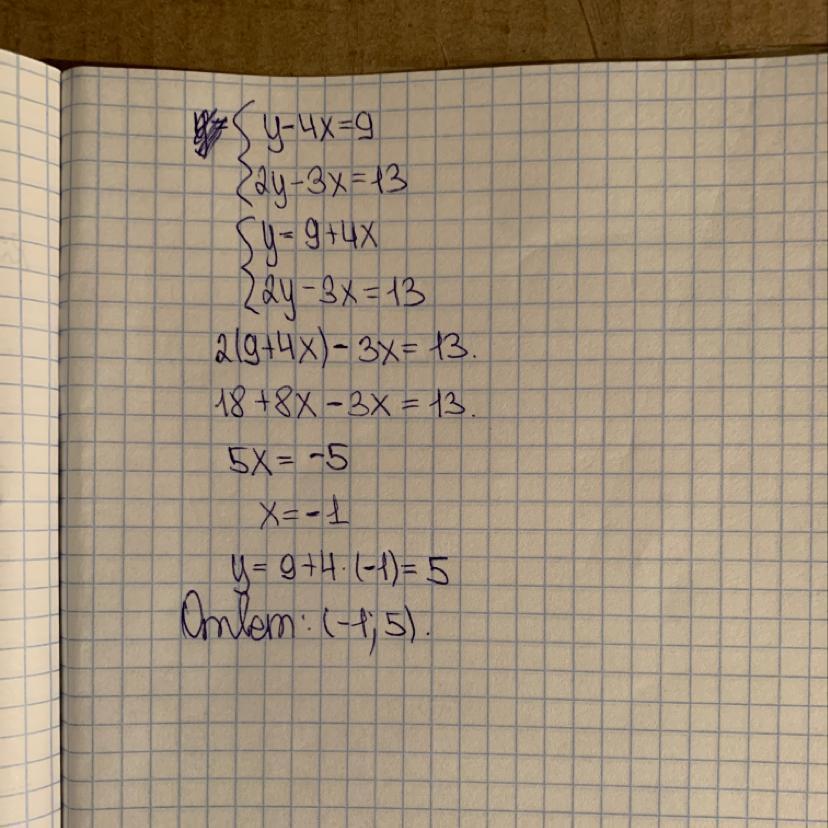 { y-4x=9
{ 2y-3x=13
{ y= 9+4x
{ 2y-3x=13
2(9+4x)-3x= 13.
18+8x-3x=13.
5x= -5
x=-1
y= 9+4·(-1)= 5
Ответ: (-1; 5).